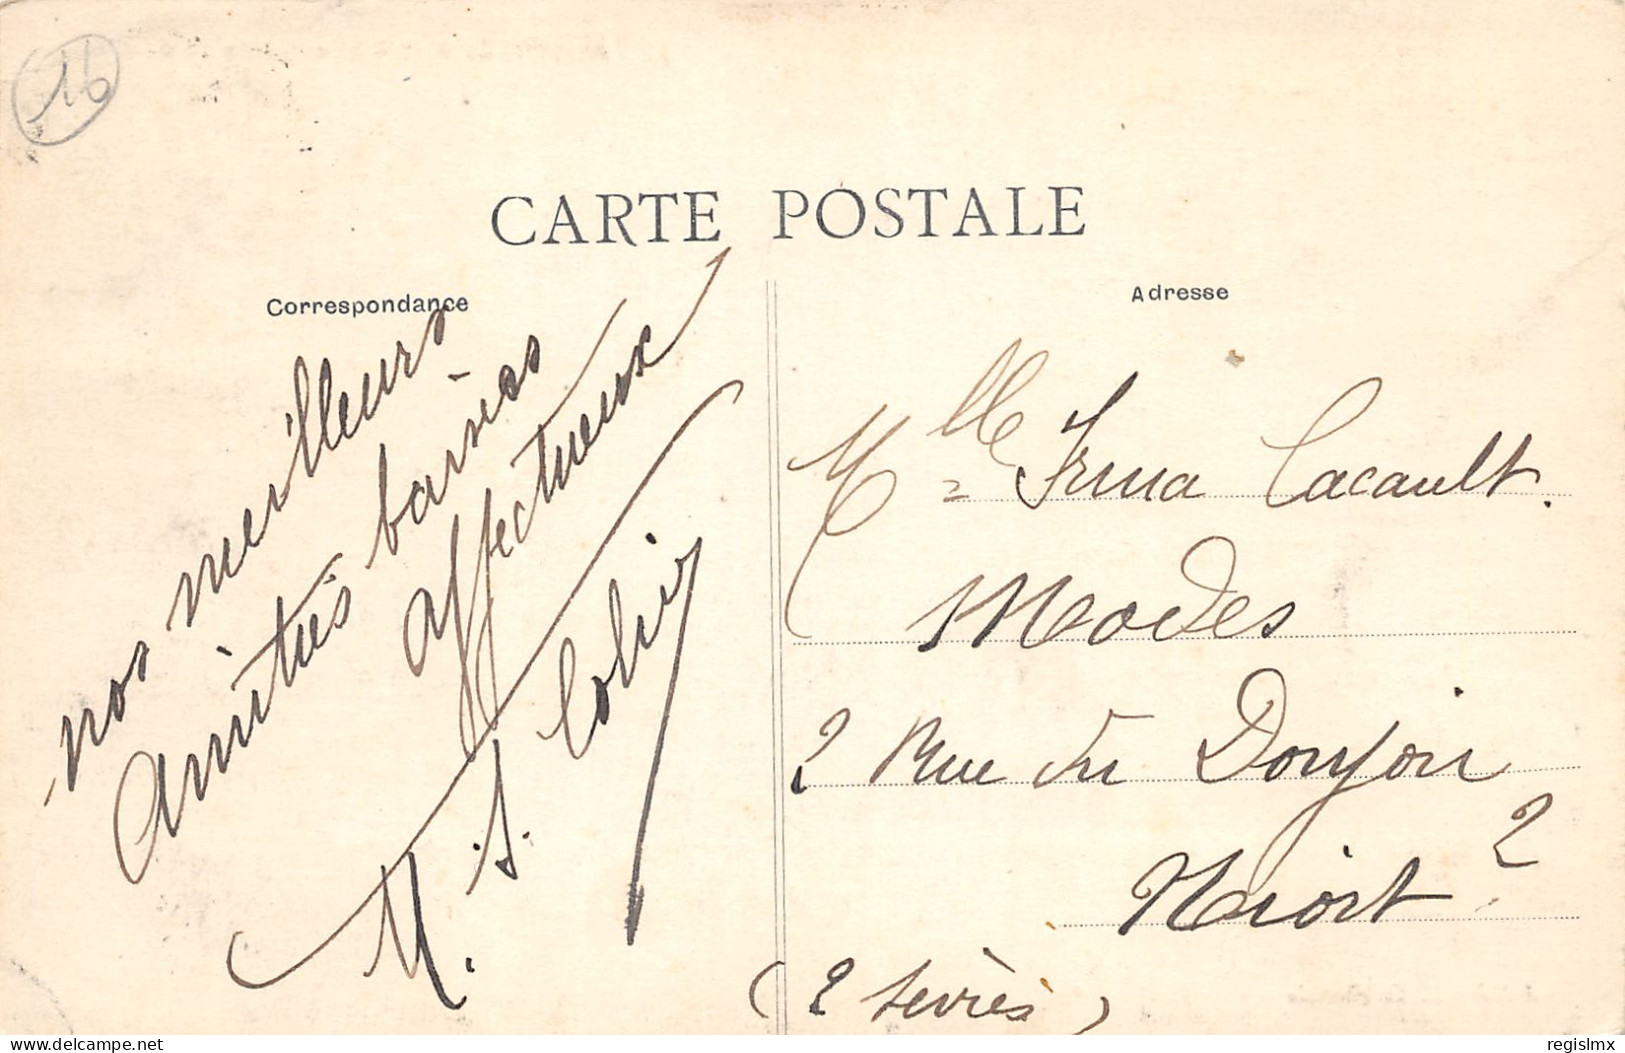 16
CARTE POSTALE
Correspondance
Adresse
nos meilleurs
Amitiés baisers
affectueux
M. S. Colin
Mlle Irma Cacault.
Modes
2 Rue du Donjon 2
Niort
(2 Sèvres)
delcampe.net
regislmx